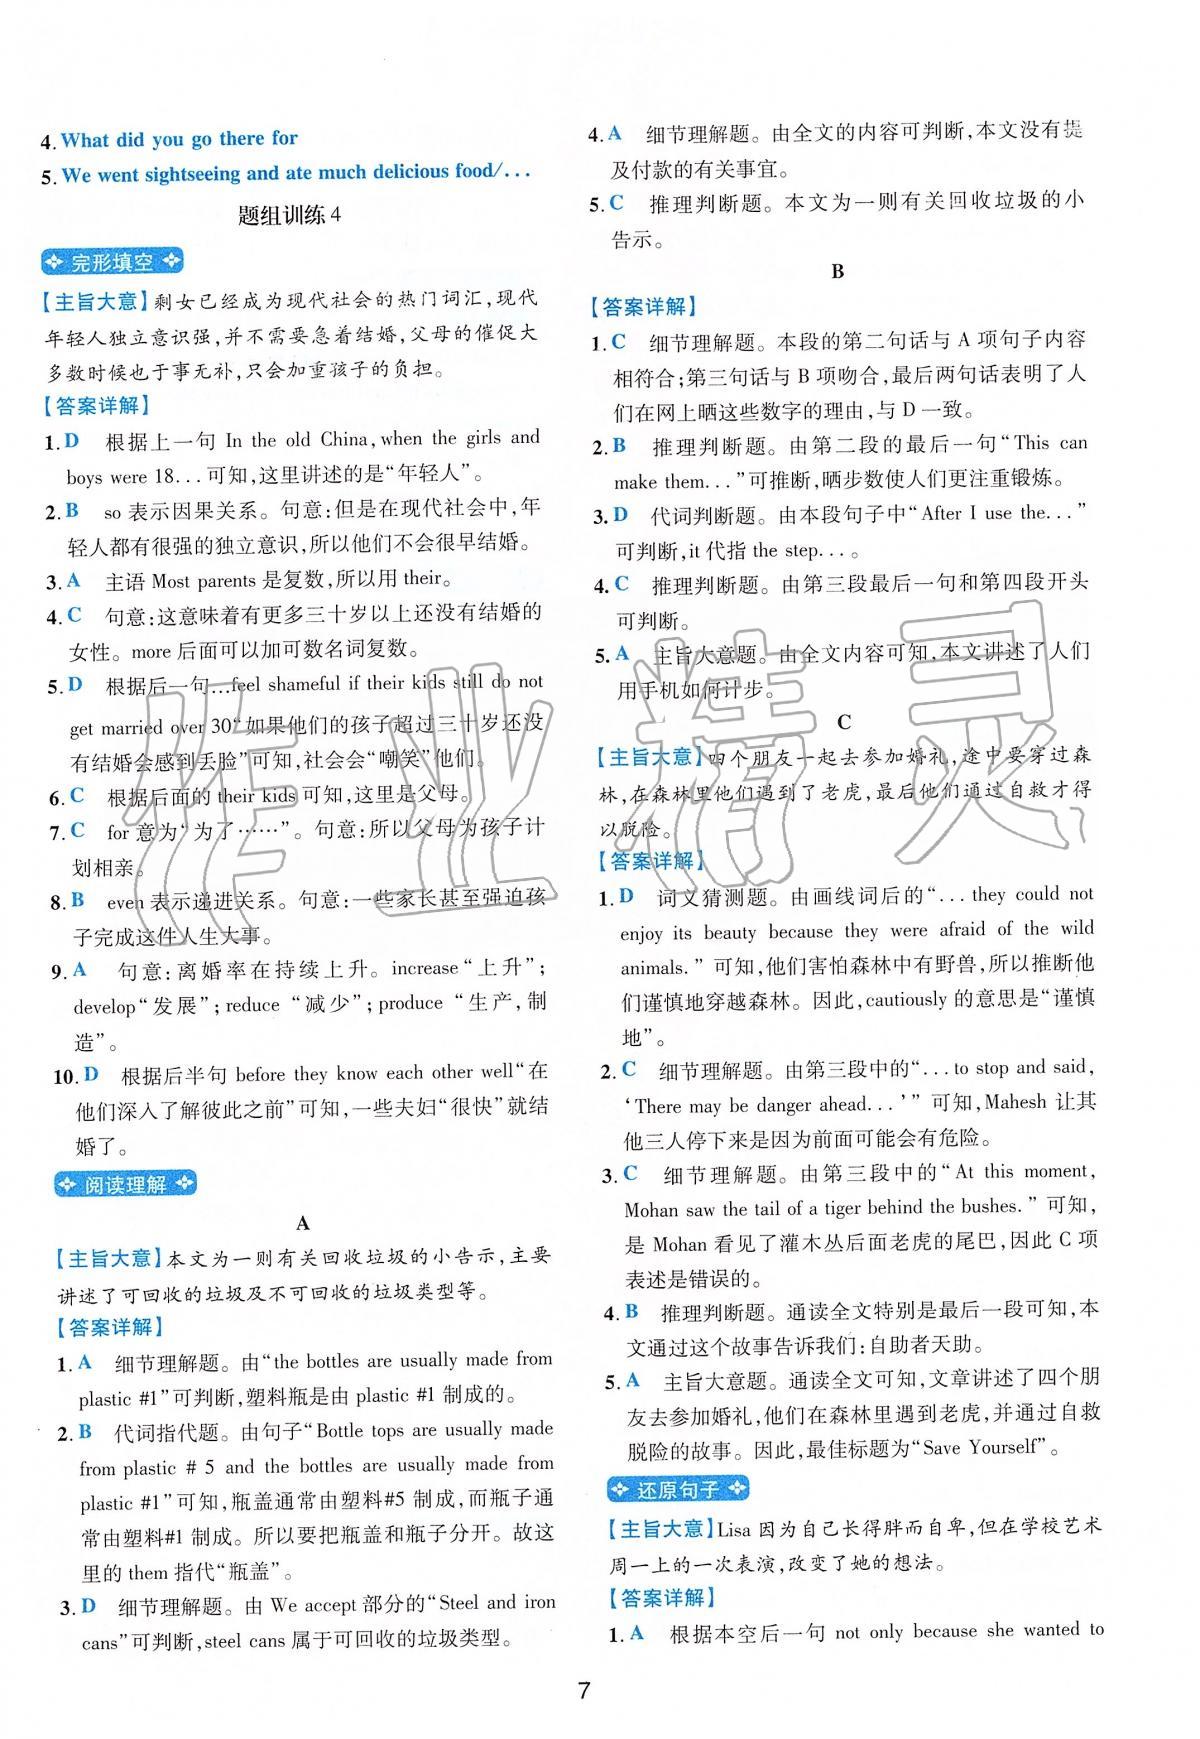 4. What did you go there for
5. We went sightseeing and ate much delicious food/...
题组训练4
完形填空
【主旨大意】剩女已经成为现代社会的热门词汇,现代
年轻人独立意识强,并不需要急着结婚,父母的催促大
多数时候也于事无补,只会加重孩子的负担。
【答案详解】
1. D 根据上一句 In the old China, when the girls and
boys were 18...可知,这里讲述的是“年轻人”。
2. B so 表示因果关系。句意:但是在现代社会中,年
轻人都有很强的独立意识,所以他们不会很早结婚。
3. A 主语 Most parents 是复数,所以用 their。
4. C 句意:这意味着有更多三十岁以上还没有结婚的
女性。more 后面可以加可数名词复数。
5. D 根据后一句...feel shameful if their kids still do not
get married over 30“如果他们的孩子超过三十岁还没
有结婚会感到丢脸”可知,社会会“嘲笑”他们。
6. C 根据后面的 their kids 可知,这里是父母。
7. C for 意为“为了……”。句意:所以父母为孩子计
划相亲。
8. B even 表示递进关系。句意:一些家长甚至强迫孩
子完成这件人生大事。
9. A 句意:离婚率在持续上升。increase“上升”;
develop“发展”;reduce “减少”;produce “生产,制
造”。
10. D 根据后半句 before they know each other well“在
他们深入了解彼此之前”可知,一些夫妇“很快”就结
婚了。
阅读理解
A
【主旨大意】本文为一则有关回收垃圾的小告示,主要
讲述了可回收的垃圾及不可回收的垃圾类型等。
【答案详解】
1. A 细节理解题。由“the bottles are usually made from
plastic #1”可判断,塑料瓶是由 plastic #1 制成的。
2. B 代词指代题。由句子“Bottle tops are usually made
from plastic # 5 and the bottles are usually made from
plastic #1”可知,瓶盖通常由塑料#5 制成,而瓶子通
常由塑料#1 制成。所以要把瓶盖和瓶子分开。故这
里的 them 指代“瓶盖”。
3. D 细节理解题。由 We accept 部分的“Steel and iron
cans”可判断,steel cans 属于可回收的垃圾类型。
4. A 细节理解题。由全文的内容可判断,本文没有提
及付款的有关事宜。
5. C 推理判断题。本文为一则有关回收垃圾的小
告示。
B
【答案详解】
1. C 细节理解题。本段的第二句话与 A 项句子内容
相符合;第三句话与 B 项吻合,最后两句话表明了人
们在网上晒这些数字的理由,与 D 一致。
2. B 推理判断题。由第二段的最后一句“This can
make them...”可推断,晒步数使人们更注重锻炼。
3. D 代词判断题。由本段句子中“After I use the...”
可判断,it 代指 the step...。
4. C 推理判断题。由第三段最后一句和第四段开头
可判断。
5. A 主旨大意题。由全文内容可知,本文讲述了人们
用手机如何计步。
C
【主旨大意】四个朋友一起去参加婚礼,途中要穿过森
林,在森林里他们遇到了老虎,最后他们通过自救才得
以脱险。
【答案详解】
1. D 词文猜测题。由画线词后的“...they could not
enjoy its beauty because they were afraid of the wild
animals.”可知,他们害怕森林中有野兽,所以推断他
们谨慎地穿越森林。因此,cautiously 的意思是“谨慎
地”。
2. C 细节理解题。由第三段中的“...to stop and said,
‘There may be danger ahead...’”可知,Mahesh 让其
他三人停下来是因为前面可能会有危险。
3. C 细节理解题。由第三段中的“At this moment,
Mohan saw the tail of a tiger behind the bushes.”可知,
是 Mohan 看见了灌木丛后面老虎的尾巴,因此 C 项
表述是错误的。
4. B 推理判断题。通读全文特别是最后一段可知,本
文通过这个故事告诉我们:自助者天助。
5. A 主旨大意题。通读全文可知,文章讲述了四个朋
友去参加婚礼,他们在森林里遇到老虎,并通过自救
脱险的故事。因此,最佳标题为“Save Yourself”。
还原句子
【主旨大意】Lisa 因为自己长得胖而自卑,但在学校艺术
周一上的一次表演,改变了她的想法。
【答案详解】
1. A 根据本空后一句 not only because she wanted to
7
作业精灵